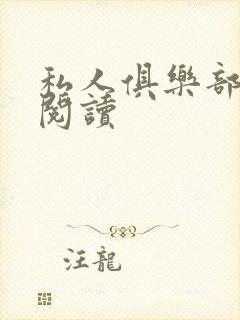 私人俱樂部
閱讀
汪龍